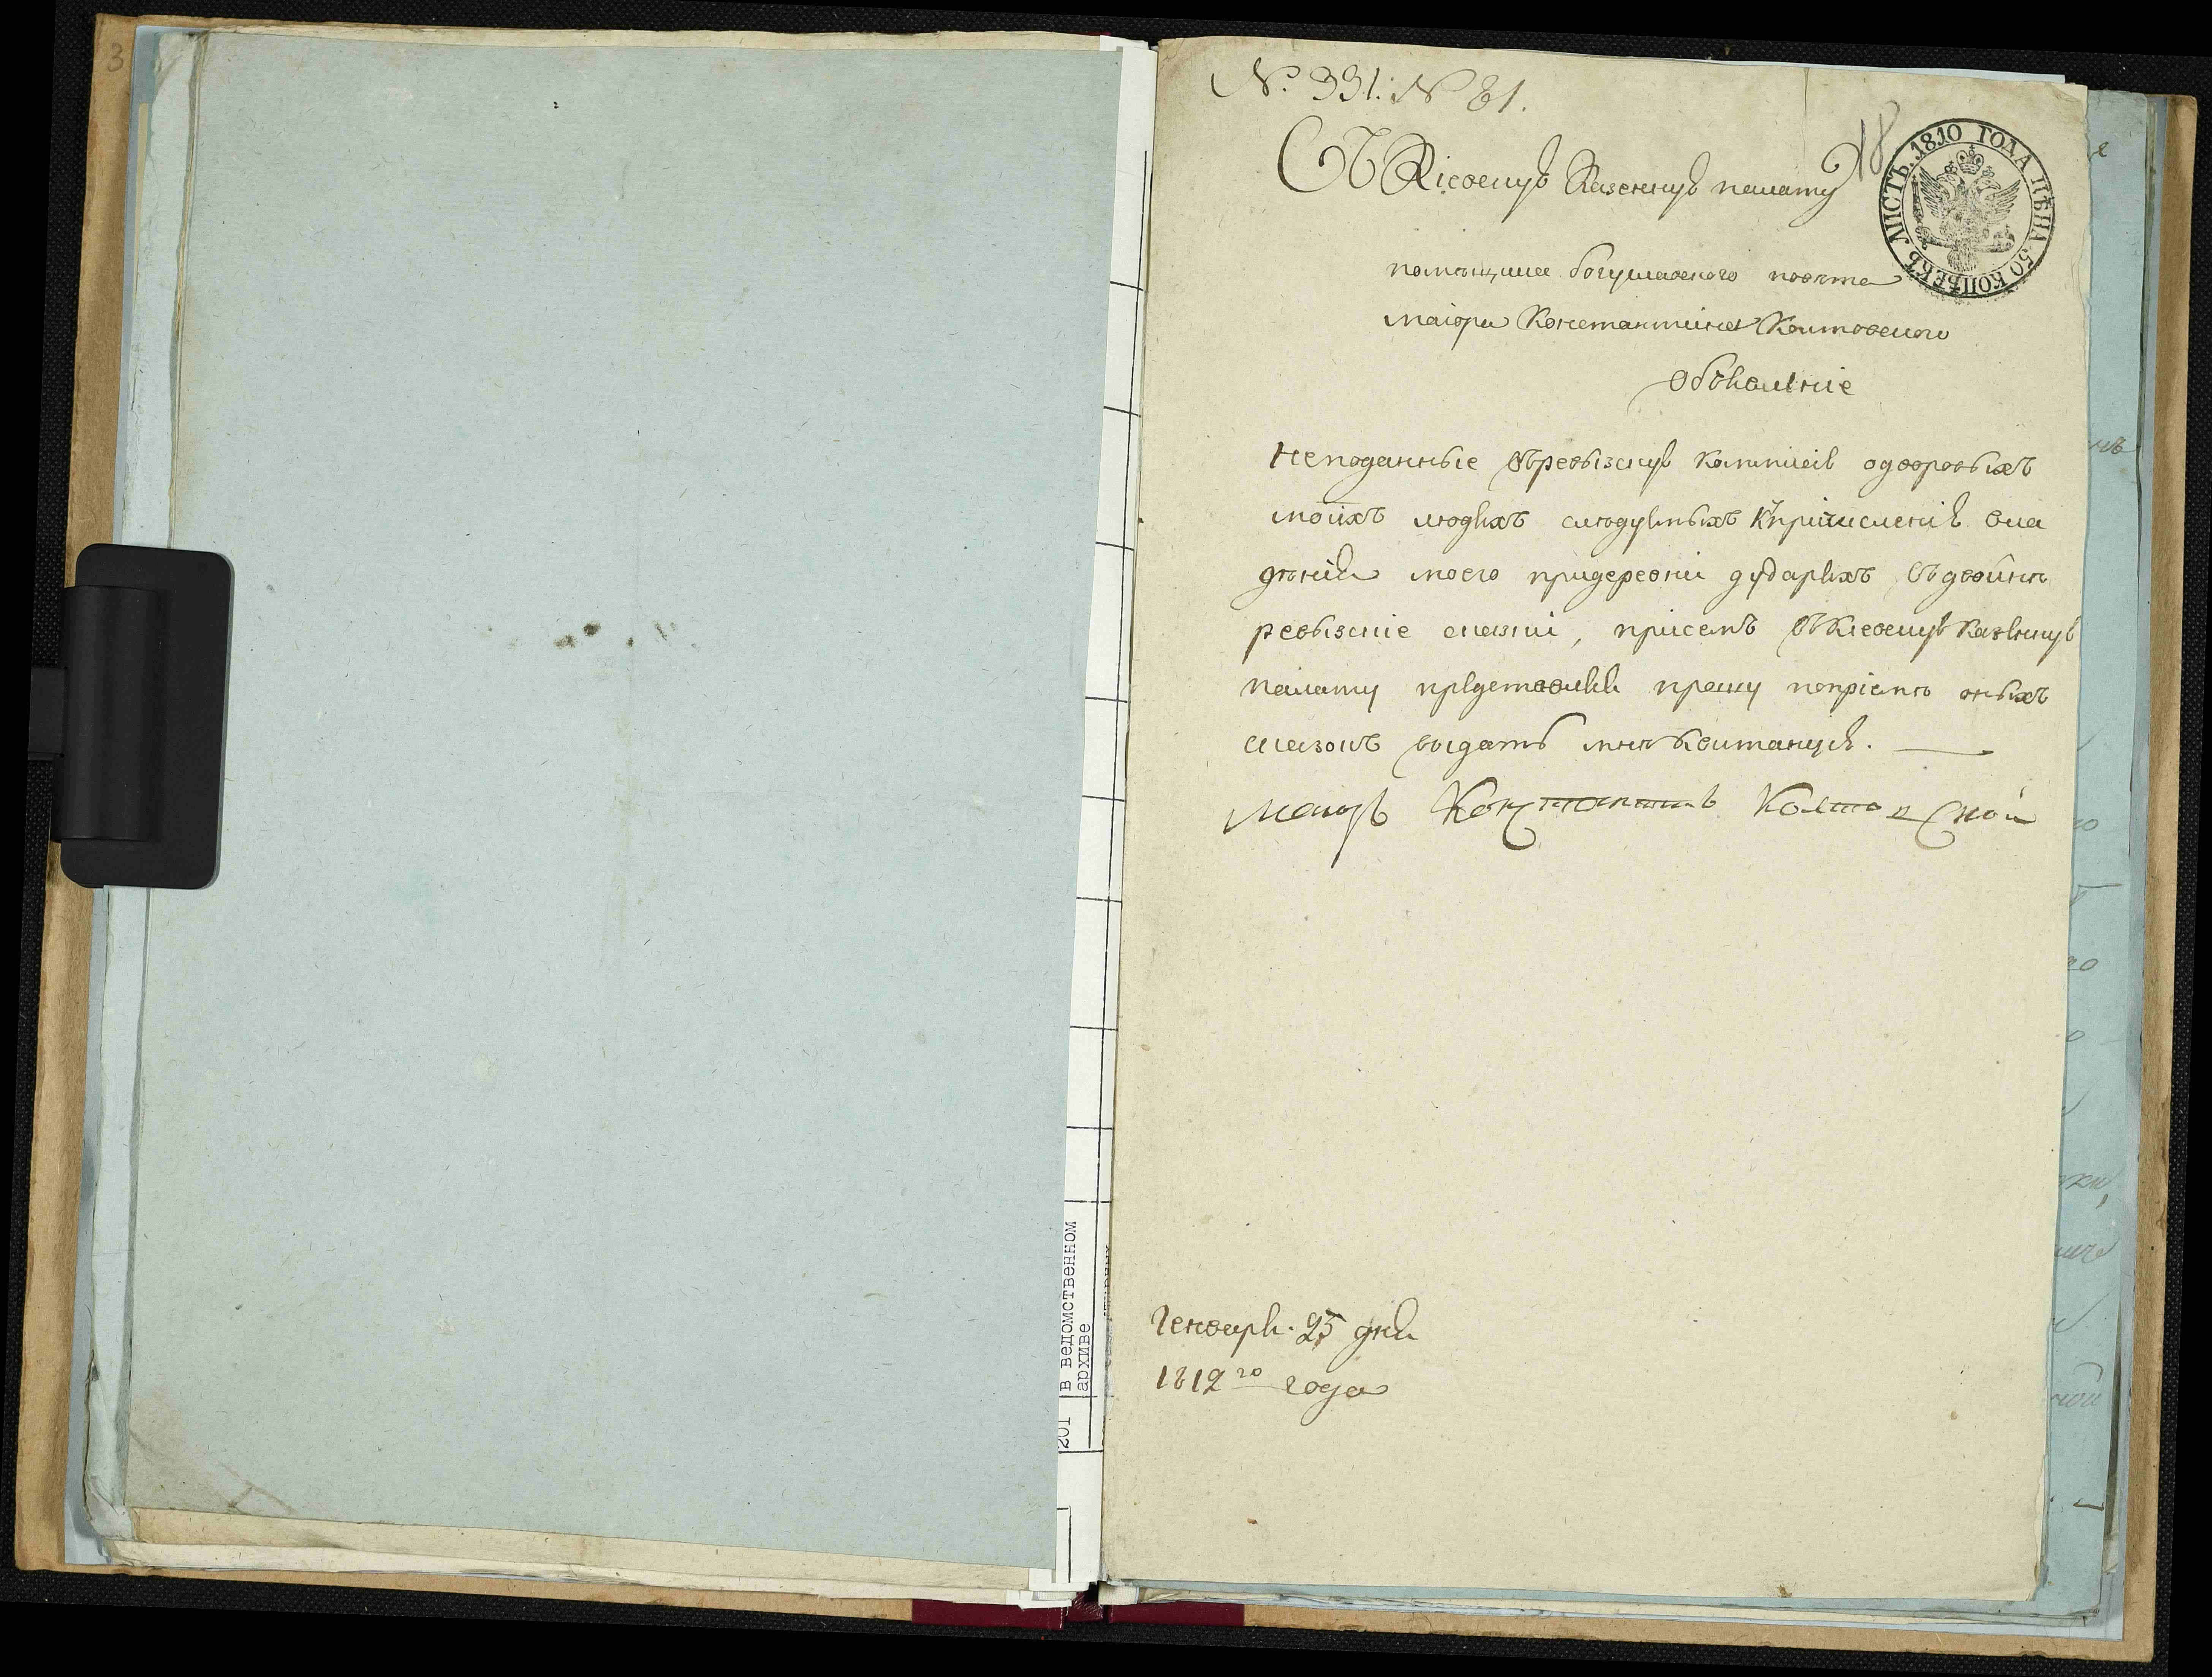 3
№ 331. № 81.
18
ЛИСТЪ. 1810 ГОДА ЦѢНА 50 КОПѢЕКЪ
Въ Кіевскую Казенную палату
помѣщика богуславского повѣта
маіора КонстантинаКолтовского
объявленіе
Неподанные въревызскую комисію одворовыхъ
моихъ людяхъ слюдуемыхъ къпричисленію вла
дѣнія моего придеревни дударяхъ въдвойнѣ
ревызскіе сказки, присемъ въКіевскую Казенную
палату представляя прошу попріемѣ оныхъ
сказокъ выдать мнѣ Квитанцію.
маіоръ Констант Колто
Генваря. 25 дня
1812го года
201
в ведомственном
архиве